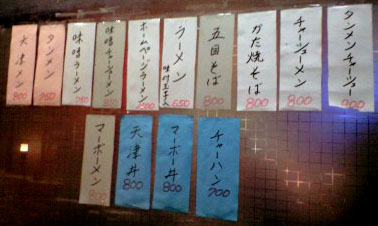 タンメンチャーシュー
900
チャーシューメン
800
かた焼そば
800
五目そば
800
ラーメン
味付玉子入
650
ホームページラーメン
味噌チャーシューメン
味噌ラーメン
タンメン
750
天津メン
800
チャーハン
700
マーボー丼
800
天津丼
800
マーボーメン
800